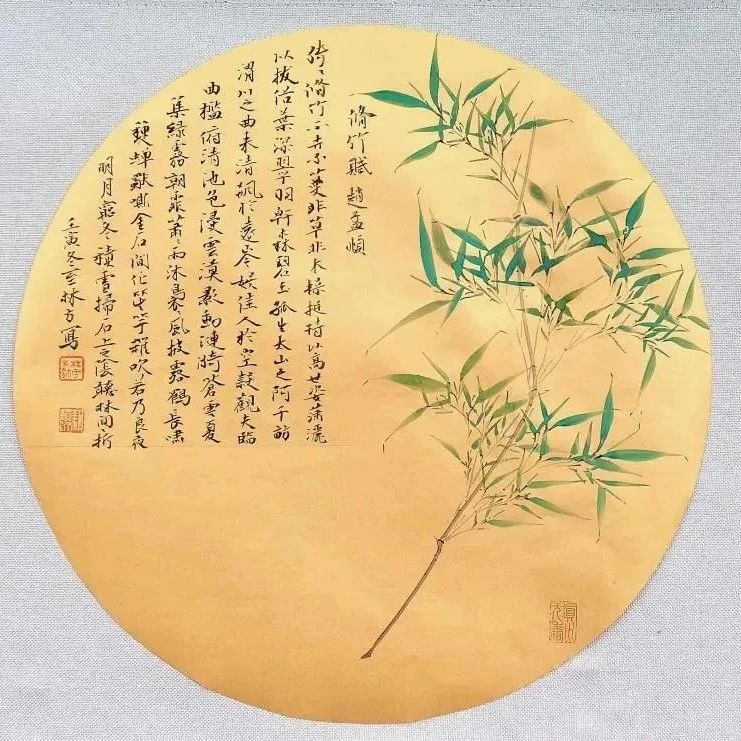 脩竹賦 趙孟頫
猗〻脩竹不卉不蔓非草非木操挺特以高世姿蕭灑
以拔俗葉深翠羽幹森碧玉孤生太山之阿千畝
渭川之曲來清飆於遠岑娛佳人於空谷觀夫臨
曲檻俯清池色浸雲漢影動漣漪蒼雲夏
集綠霧朝霏蕭〻雨沐裊風披露鶴長嘯
秋蟬獨嘶金石間作笙竽雜吹若乃良夜
明月窮冬積雪掃石上之陰聽林間折
壬寅冬至林方寫